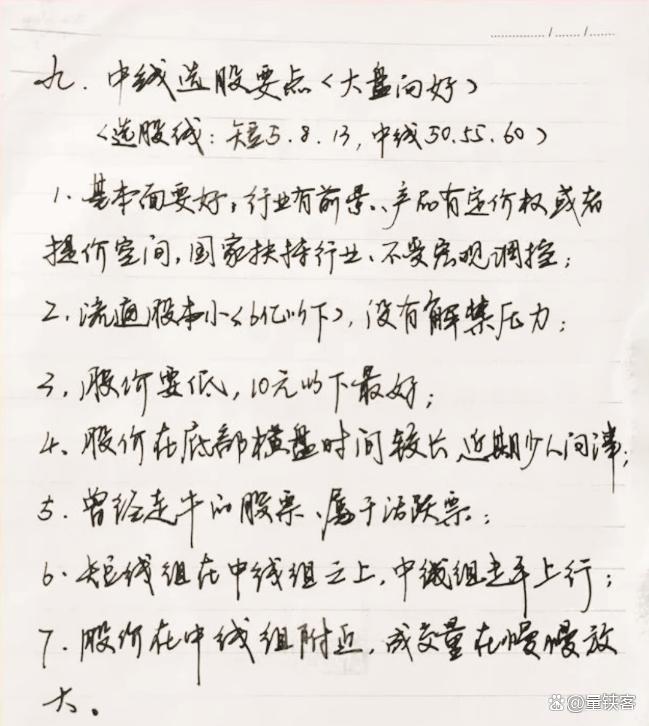 九. 中线选股要点(大盘向好)
(选股线: 短5.8.13, 中线50.55.60)
1. 基本面要好, 行业有前景、产品有定价权或者
提价空间, 国家扶持行业、不受宏观调控;
2. 流通股本小(6亿以下), 没有解禁压力;
3. 股价要低, 10元以下最好;
4. 股价在底部横盘时间较长, 近期少人问津;
5. 曾经走牛的股票、属于活跃票;
6. 短线组在中线组之上, 中线组走平上行;
7. 股价在中线组附近, 成交量在慢慢放
大。
量铁客